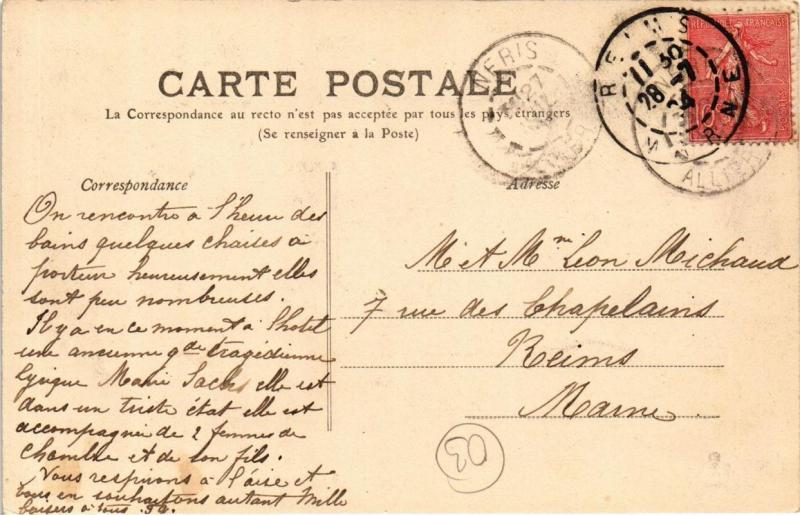 CARTE POSTALE
La Correspondance au recto n'est pas acceptée par tous les pays étrangers
(Se renseigner a la Poste)
Correspondance
On rencontre à l'heure des
bains quelques chaises à
porteur heureusement elles
sont peu nombreuses.
Il y a en ce moment à l'hotel
une ancienne gde tragédienne
lyrique Marie Sachs elle est
dans un triste état elle est
accompagnée de 2 femmes de
chambre et de son fils.
Vous respirons à l'aise et
vous en souhaitons autant Mille
baisers à tous
Adresse
M et Mme Leon Michaud
7 rue des Chapelains
Reims
Marne
03
NERIS
27
ALLIER
REIMS
11 35
28 -7
MARNE
ALLIER
REPUBLIQUE FRANÇAISE